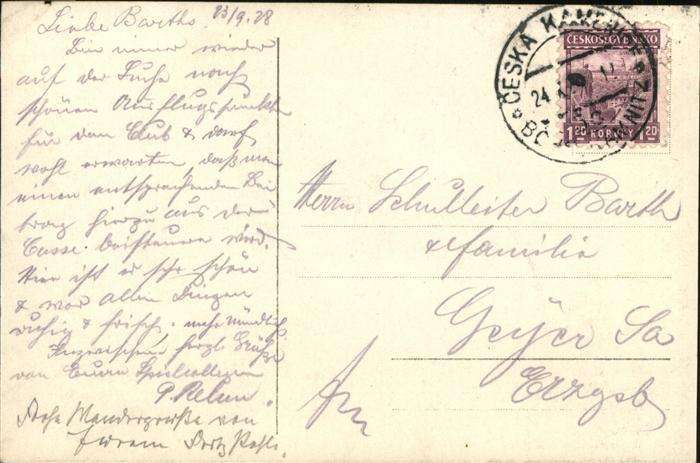 Liebe Barths 23/9.28
Bin immer wieder
auf der Suche nach
schönen Ausflugspunkten
für den Club & darf
wohl erwarten, daß man
einen entsprechenden Bei-
trag hierzu aus der
Casse beisteuern wird.
Hier ist es sehr schön
& vor allen Dingen
ruhig & frisch. mehr mündlich
Inzwischen herzl. Grüße
von Eurem
Frohe Wandergrüße von
Eurem
ČESKÁ KAMENICE
24
BÖHM.
ČESKOSLOVENSKO
1.20 KORUNY 1.20
Herrn Schulleiter Barth
& Familie
Geyer Sa
Erzgeb